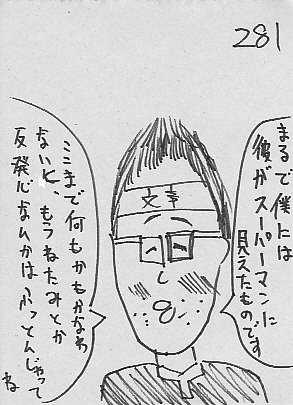 281
まるで僕には
彼がスーパーマンに
見えたものです
文幸
ここまで何もかもかなわ
ないと、もうねたみとか
反発心なんかはふっとんじゃって
ね